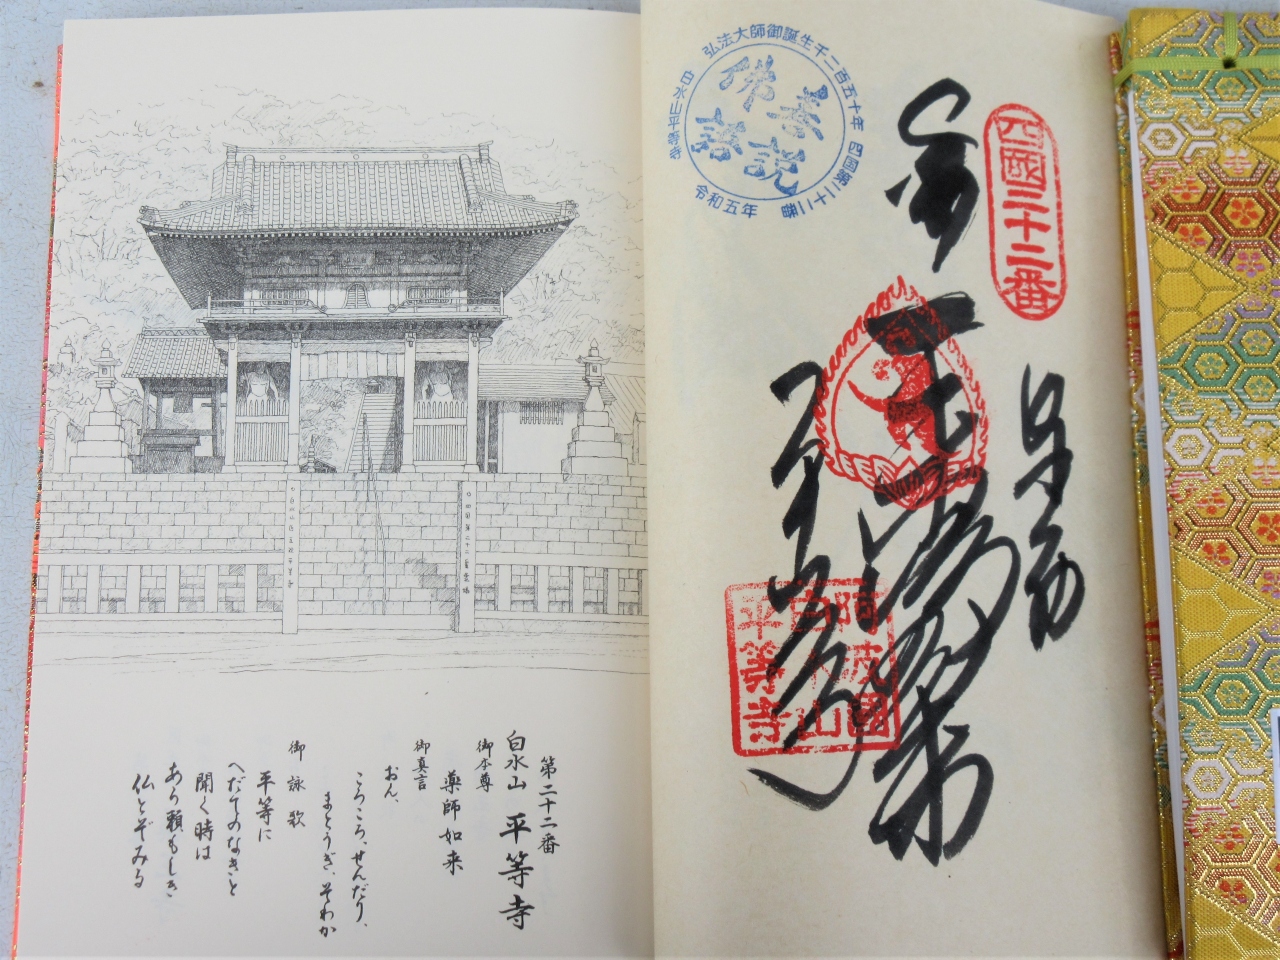 第二十二番
白水山 平等寺
御本尊
薬師如来
御真言
おん、
ころころ、せんだり、
まとうぎ、そわか
御詠歌
平等に
へだてのなきと
聞く時は
あら頼もしき
仏とぞみる
弘法大師御誕生千二百五十年
四國第二十二番
令和五年
佛語
善説
四國二十二番
奉納
阿波國
白水山
平等寺